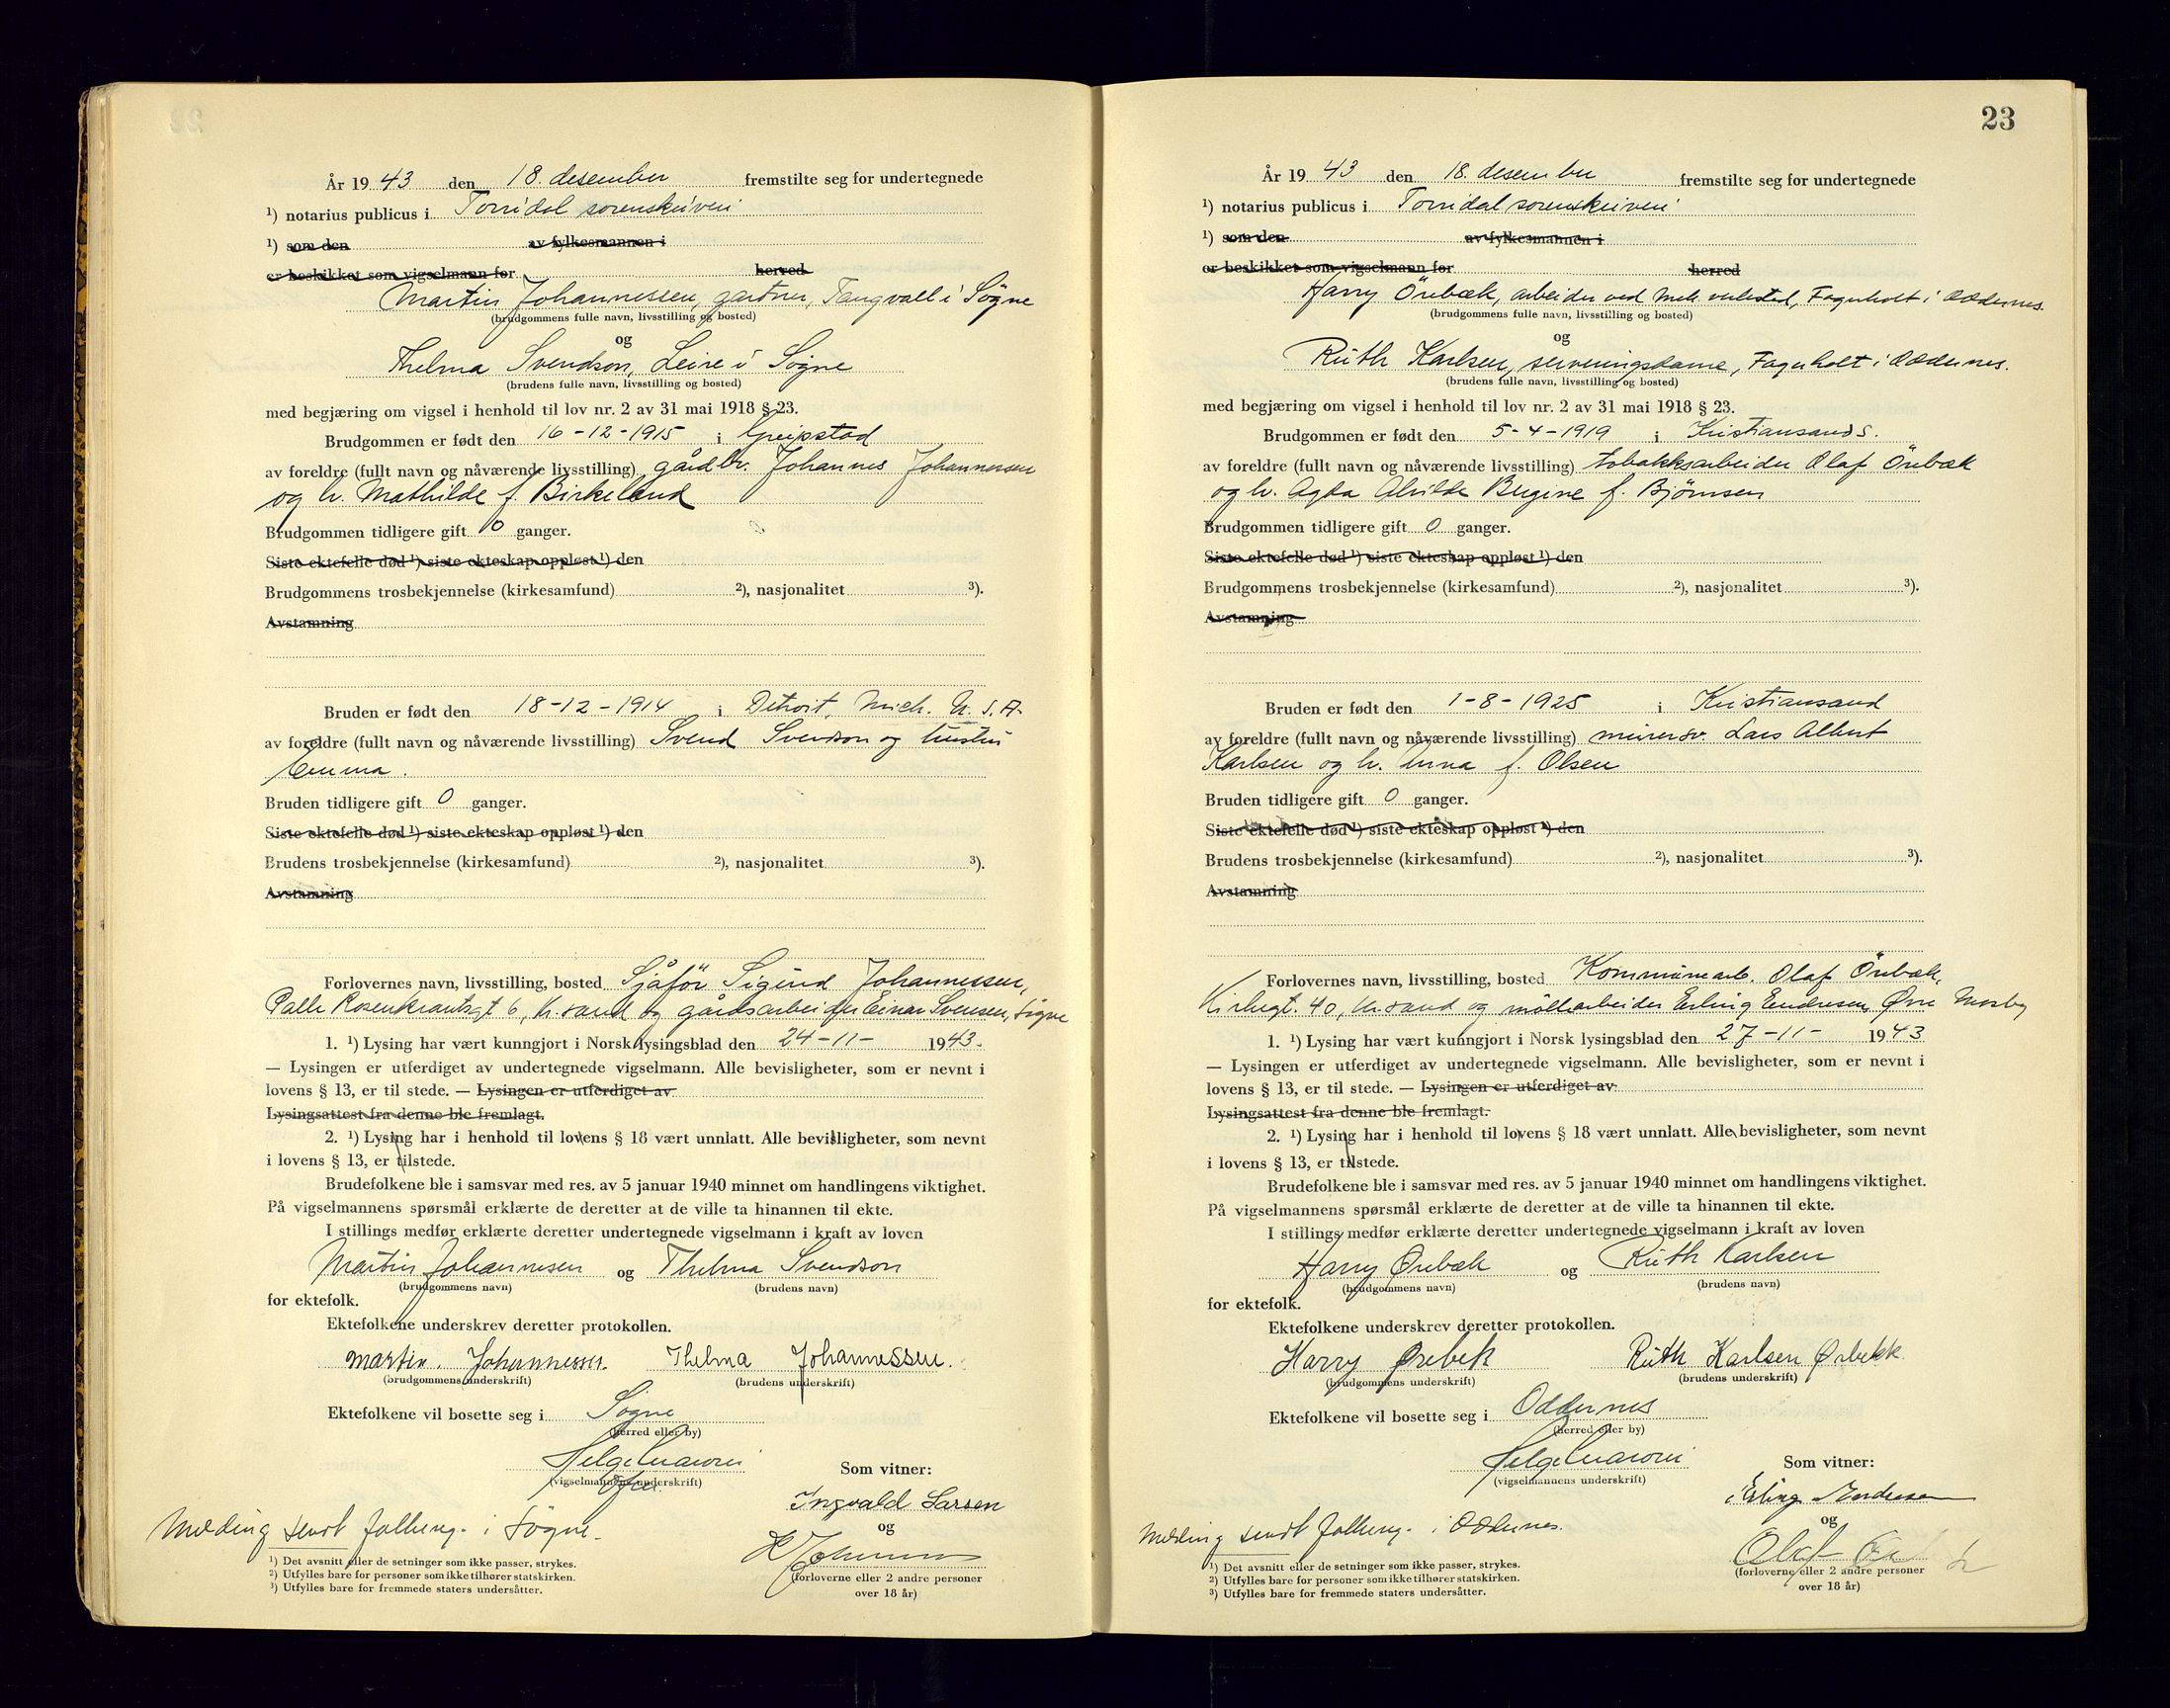 År 19 43 den 18. desember fremstilte seg for undertegnede
¹) notarius publicus i Torridal sorenskriveri
¹) som den av fylkesmannen i
er beskikket som vigselmann for herred
Martin Johannessen, gartner, Tangvall i Søgne
(brudgommens fulle navn, livsstilling og bosted)
og
Thelma Svendson, Leire i Søgne
(brudens fulle navn, livsstilling og bosted)
med begjæring om vigsel i henhold til lov nr. 2 av 31 mai 1918 § 23.
Brudgommen er født den 16-12-1915 i Greipstad
av foreldre (fullt navn og nåværende livsstilling) gårdbr. Johannes Johannessen
og h. Mathilde f. Birkeland
Brudgommen tidligere gift 0 ganger.
Siste ektefelle død ¹) siste ekteskap oppløst ¹) den
Brudgommens trosbekjennelse (kirkesamfund) ²), nasjonalitet ³).
Avstamning
Bruden er født den 18-12-1914 i Detroit, Mich. U.S.A.
av foreldre (fullt navn og nåværende livsstilling) Svend Svendson og hustru
Emma.
Bruden tidligere gift 0 ganger.
Siste ektefelle død ¹) siste ekteskap oppløst ¹) den
Brudens trosbekjennelse (kirkesamfund) ²), nasjonalitet ³).
Avstamning
Forlovernes navn, livsstilling, bosted Sjåfør Sigurd Johannessen,
Palle Rosenkrantzgt 6, Kr.sand og gårdsarbeider Einar Svensen, Søgne
1. ¹) Lysing har vært kunngjort i Norsk lysingsblad den 24-11- 1943.
— Lysingen er utferdiget av undertegnede vigselmann. Alle bevisligheter, som er nevnt i
lovens § 13, er til stede. — Lysingen er utferdiget av
Lysingsattest fra denne ble fremlagt.
2. ¹) Lysing har i henhold til lovens § 18 vært unnlatt. Alle bevisligheter, som nevnt
i lovens § 13, er tilstede.
Brudefolkene ble i samsvar med res. av 5 januar 1940 minnet om handlingens viktighet.
På vigselmannens spørsmål erklærte de deretter at de ville ta hinannen til ekte.
I stillings medfør erklærte deretter undertegnede vigselmann i kraft av loven
Martin Johannesen og Thelma Svendson
(brudgommens navn) (brudens navn)
for ektefolk.
Ektefolkene underskrev deretter protokollen.
Martin. Johannessen. Thelma Johannessen.
(brudgommens underskrift) (brudens underskrift)
Ektefolkene vil bosette seg i Søgne
(herred eller by)
(vigselmannens underskrift) Som vitner:
Ingvald Larsen
og
Melding sendt folkereg. i Søgne.
(forloverne eller 2 andre personer
over 18 år)
¹) Det avsnitt eller de setninger som ikke passer, strykes.
²) Utfylles bare for personer som ikke tilhører statskirken.
³) Utfylles bare for fremmede staters undersåtter.
23
År 19 43 den 18. desember fremstilte seg for undertegnede
¹) notarius publicus i Torridal sorenskriveri
¹) som den av fylkesmannen i
er beskikket som vigselmann for herred
Harry Örebæk, arbeider ved mek. verksted, Fagerholt i Oddernes.
(brudgommens fulle navn, livsstilling og bosted)
og
Ruth Karlsen, serveringsdame, Fagerholt i Oddernes.
(brudens fulle navn, livsstilling og bosted)
med begjæring om vigsel i henhold til lov nr. 2 av 31 mai 1918 § 23.
Brudgommen er født den 5-4-1919 i Kristiansand S.
av foreldre (fullt navn og nåværende livsstilling) tobakksarbeider Olaf Örebæk
og h. Agda Alvilde Birgine f. Bjørnsen
Brudgommen tidligere gift 0 ganger.
Siste ektefelle død ¹) siste ekteskap oppløst ¹) den
Brudgommens trosbekjennelse (kirkesamfund) ²), nasjonalitet ³).
Avstamning
Bruden er født den 1-8-1925 i Kristiansand
av foreldre (fullt navn og nåværende livsstilling) murersv. Lars Albert
Karlsen og h. Anna f. Olsen
Bruden tidligere gift 0 ganger.
Siste ektefelle død ¹) siste ekteskap oppløst ¹) den
Brudens trosbekjennelse (kirkesamfund) ²), nasjonalitet ³).
Avstamning
Forlovernes navn, livsstilling, bosted Kommunearb. Olaf Örebæk,
Kirkegt. 40, Kr.sand og møllearbeider Erling Endresen, Øvre Mosby
1. ¹) Lysing har vært kunngjort i Norsk lysingsblad den 27-11- 1943
— Lysingen er utferdiget av undertegnede vigselmann. Alle bevisligheter, som er nevnt i
lovens § 13, er til stede. — Lysingen er utferdiget av
Lysingsattest fra denne ble fremlagt.
2. ¹) Lysing har i henhold til lovens § 18 vært unnlatt. Alle bevisligheter, som nevnt
i lovens § 13, er tilstede.
Brudefolkene ble i samsvar med res. av 5 januar 1940 minnet om handlingens viktighet.
På vigselmannens spørsmål erklærte de deretter at de ville ta hinannen til ekte.
I stillings medfør erklærte deretter undertegnede vigselmann i kraft av loven
Harry Örebæk og Ruth Karlsen
(brudgommens navn) (brudens navn)
for ektefolk.
Ektefolkene underskrev deretter protokollen.
Harry Ørebek Ruth Karlsen Ørbekk
(brudgommens underskrift) (brudens underskrift)
Ektefolkene vil bosette seg i Oddernes
(herred eller by)
(vigselmannens underskrift) Som vitner:
Erling Endresen
og
Melding sendt folkereg. i Oddernes.
Olaf
(forloverne eller 2 andre personer
over 18 år)
¹) Det avsnitt eller de setninger som ikke passer, strykes.
²) Utfylles bare for personer som ikke tilhører statskirken.
³) Utfylles bare for fremmede staters undersåtter.